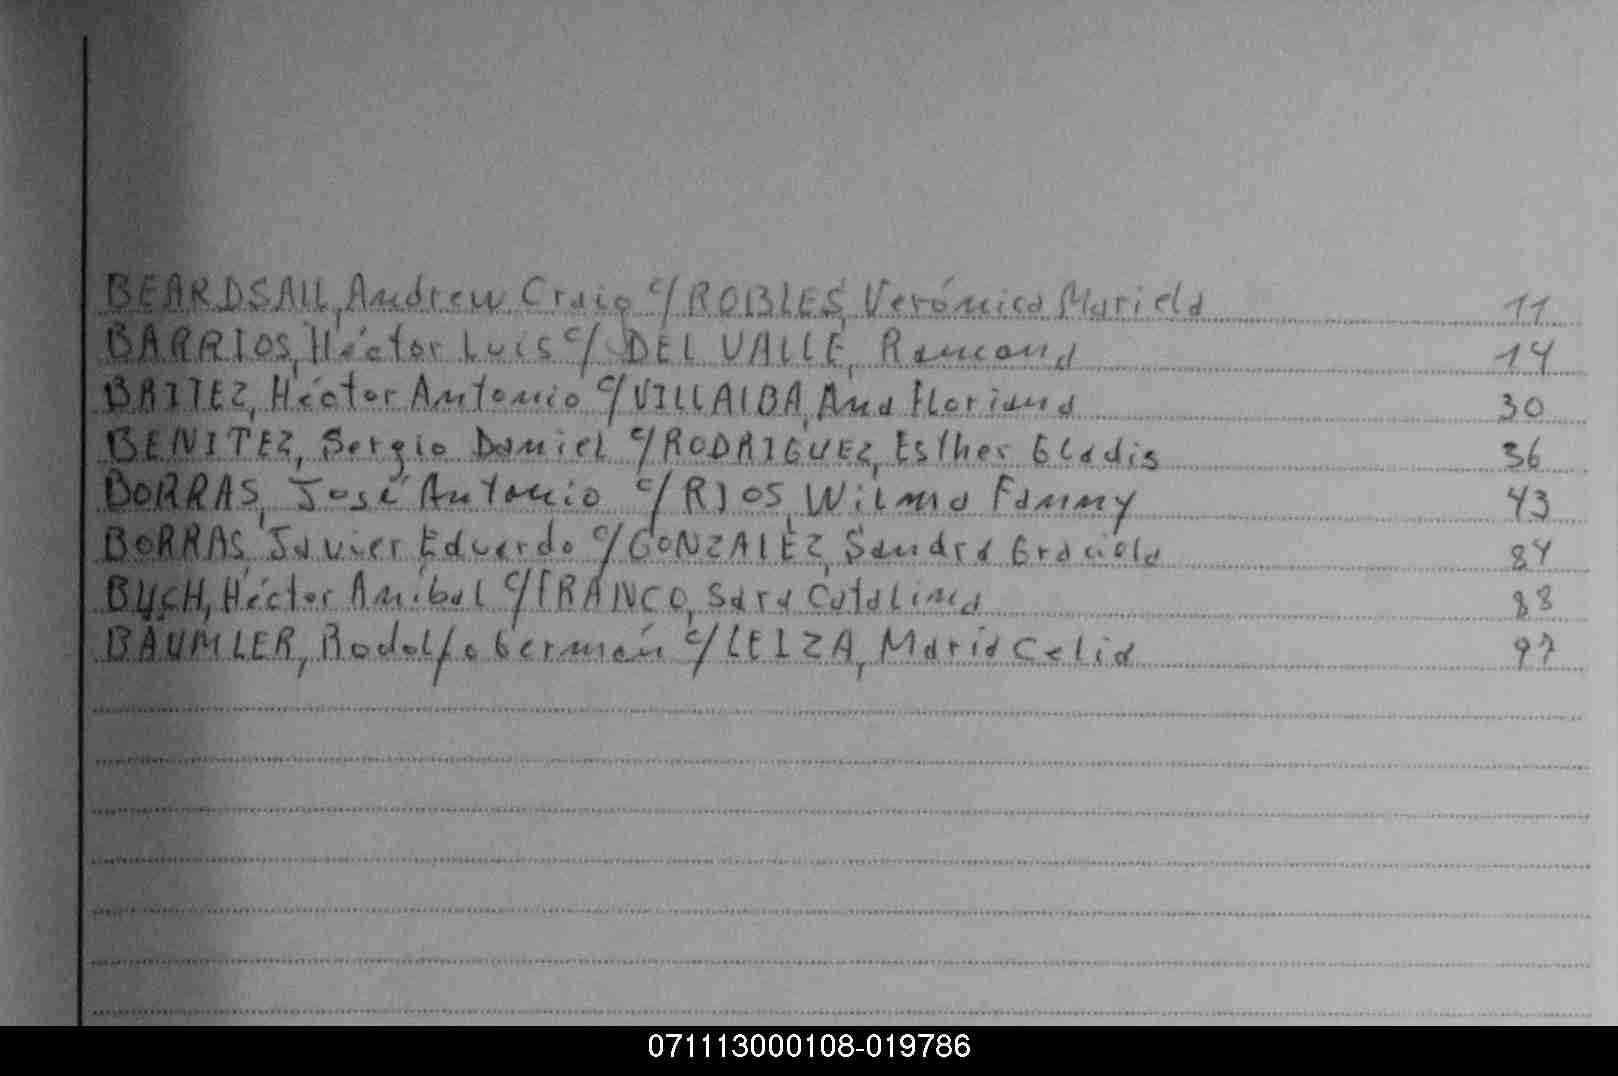 BEARDSALL, Andrew Craig c/ ROBLES, Verónica Mariela 11
BARRIOS, Héctor Luis c/ DEL VALLE, Ramona 14
BAITEZ, Héctor Antonio c/ VILLALBA, Ana Floriana 30
BENITEZ, Sergio Daniel c/ RODRIGUEZ, Esther Gladis 36
BORRAS, José Antonio c/ RIOS, Wilma Fanny 43
BORRAS, Javier Eduardo c/ GONZALEZ, Sandra Graciela 84
Héctor Anibal c/ FRANCO, Sara Catalina 88
BAUMLER, Rodolfo Germán c/ LEIZA, María Celia 97
071113000108-019786